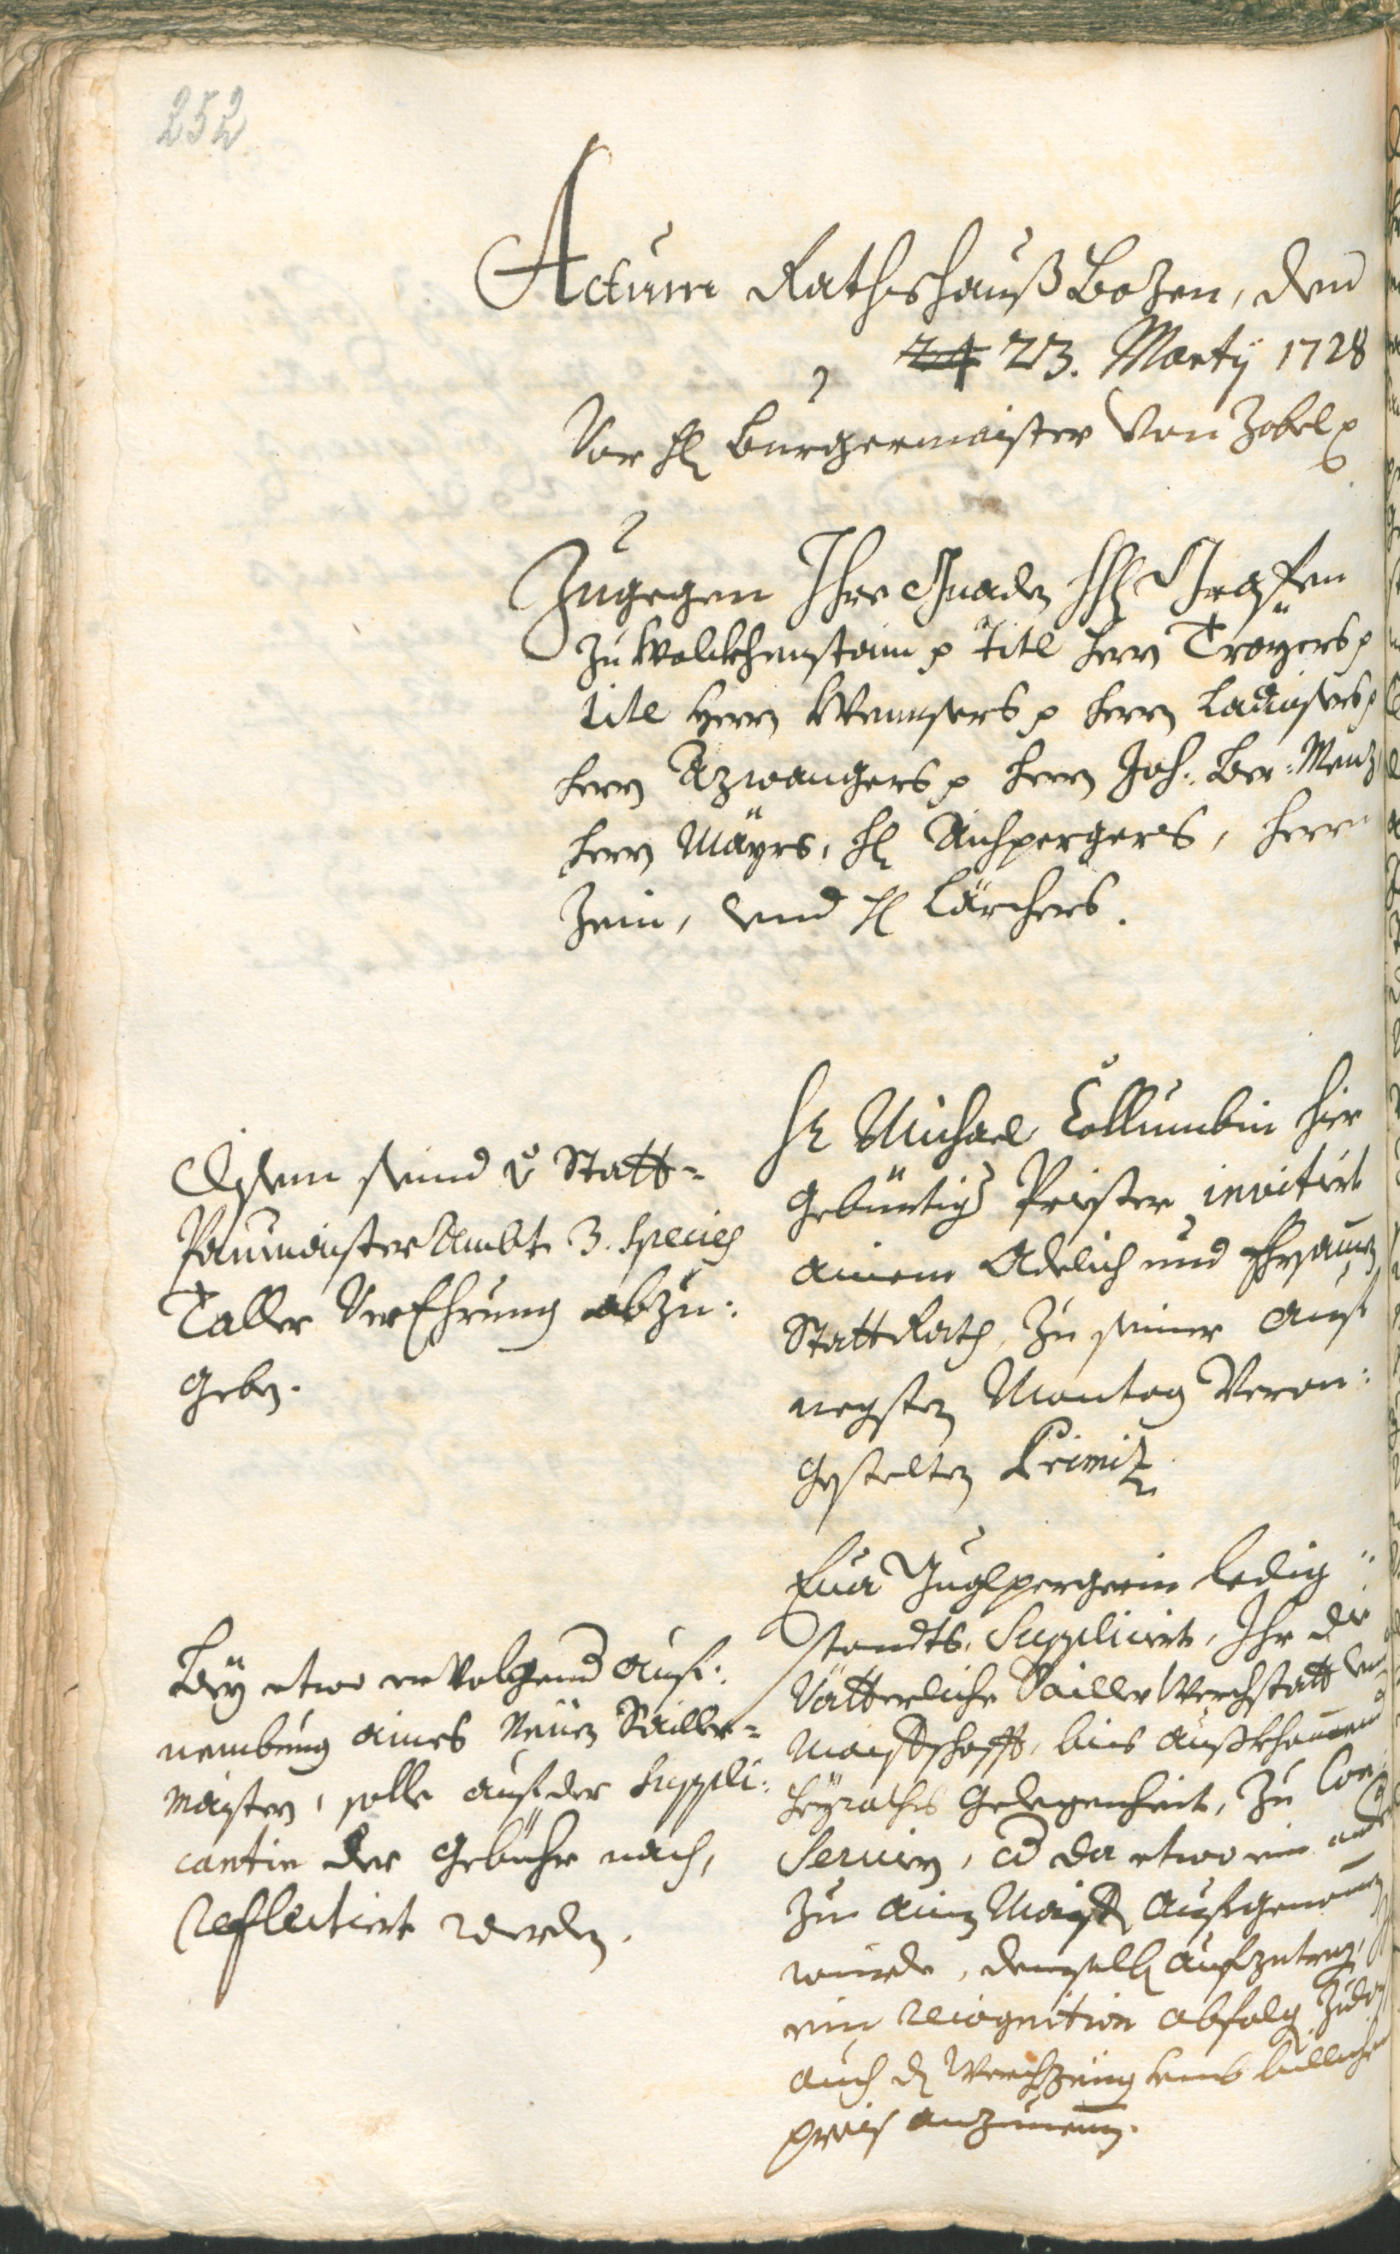 252
Actum Rathshauß Bozen, den
24 23. Marty 1728
Vor H Burgermaister von Zobel p
Zugegen Ihre Gnaden HH Grafen
zu Wolckhenstain p titl Herrn Troyers p
titl Herrn Wennsers p Herrn
Herrn Azwangers p Herrn Joh: Ber: Menz
Herrn Mayrs, H Aichpergers, Herrn
Zein, vnd H Lärchers.
Hr Michael Collumbin hier
gebürtig Priester invitirt
ainem Adelich und Ehrsamen
Statt Rath, zu seiner auf
negsten Montag veran:
gestelten Primiz
Disem seind Statt-
Paumaister Ambt 3. Species
Taller Verehrung abzu:
geben.
Eua Juglpergerin ledig
standts, Supplicirt, Ihr die
Vätterliche Sailler Werchstatt
Maisterschafft, bis
Heyraths Gelegenheit, zu Con
seruirn, da etwo ein
zu ain Maister aufgenomen
wurde, demselben aufzutragen,
ein recognition abfolgen zu
auch den Werchzeug umb billichen
preis anzunemen.
Bey etwo ervolgend auf:
nembung aines Neuen Sailler-
maisters, solle auf der Suppli:
cantin der gebühr nach,
reflectiert werden.